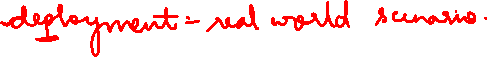 deployment = real world scenario.